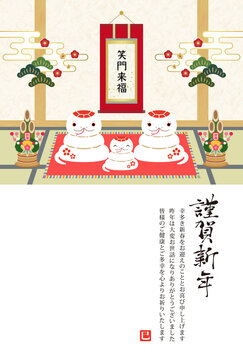 笑門来福
謹賀新年
幸多き新春をお迎えのこととお喜び申し上げます
昨年は大変お世話になりありがとうございました
皆様のご健康とご多幸を心よりお祈りいたします
巳